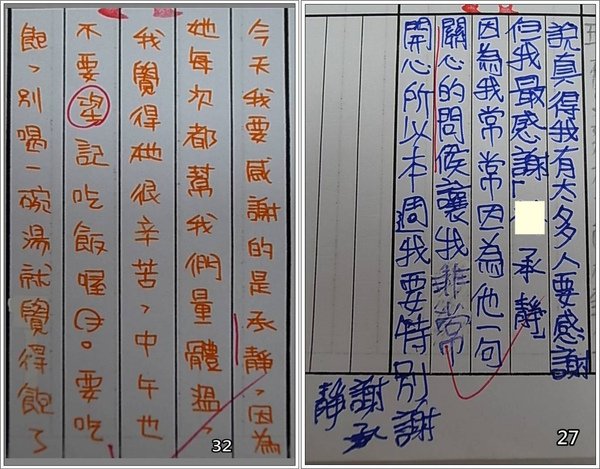 今天我要感謝的是承靜、因為
她每次都幫我們量體溫、
我覺得她很辛苦、中午也
不要望記吃飯喔。要吃
飽、別喝一碗湯就覺得飽了
32
說真得我有太多人要感謝
但我最感謝 承靜
因為我常常因為他一句
關心的問候讓我非常
開心所以本週我要特別謝
謝承
靜
27